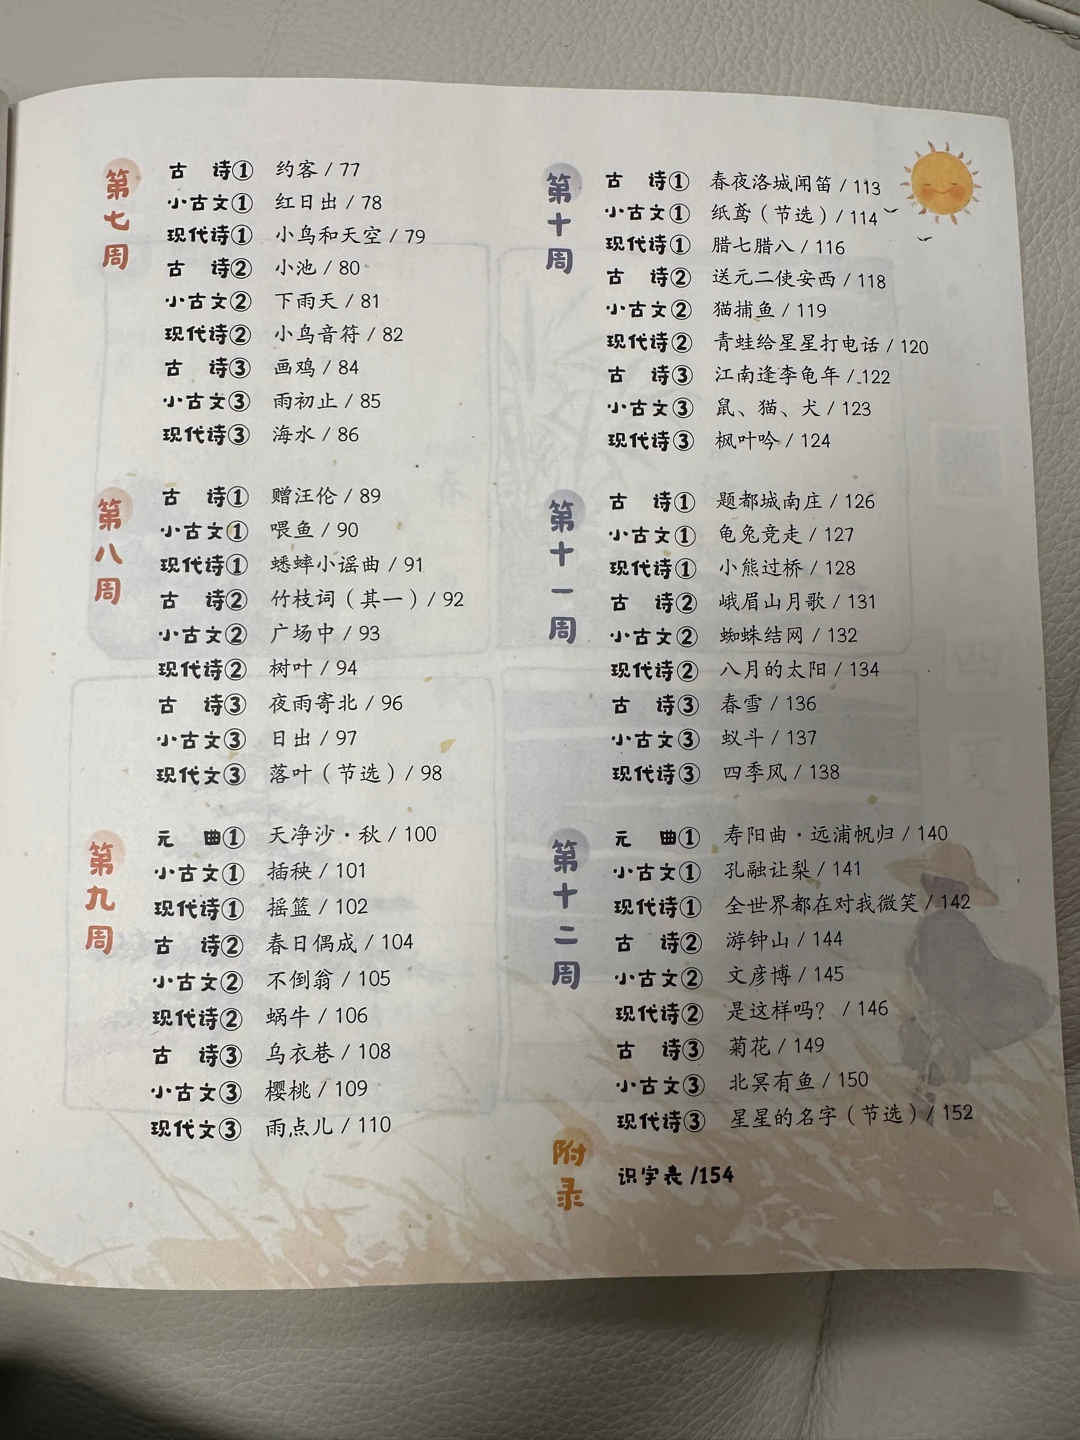 第七周
古 诗① 约客 / 77
小古文① 红日出 / 78
现代诗① 小鸟和天空 / 79
古 诗② 小池 / 80
小古文② 下雨天 / 81
现代诗② 小鸟音符 / 82
古 诗③ 画鸡 / 84
小古文③ 雨初止 / 85
现代诗③ 海水 / 86
第八周
古 诗① 赠汪伦 / 89
小古文① 喂鱼 / 90
现代诗① 蟋蟀小谣曲 / 91
古 诗② 竹枝词（其一）/ 92
小古文② 广场中 / 93
现代诗② 树叶 / 94
古 诗③ 夜雨寄北 / 96
小古文③ 日出 / 97
现代文③ 落叶（节选）/ 98
第九周
元 曲① 天净沙·秋 / 100
小古文① 插秧 / 101
现代诗① 摇篮 / 102
古 诗② 春日偶成 / 104
小古文② 不倒翁 / 105
现代诗② 蜗牛 / 106
古 诗③ 乌衣巷 / 108
小古文③ 樱桃 / 109
现代文③ 雨点儿 / 110
第十周
古 诗① 春夜洛城闻笛 / 113
小古文① 纸鸢（节选）/ 114
现代诗① 腊七腊八 / 116
古 诗② 送元二使安西 / 118
小古文② 猫捕鱼 / 119
现代诗② 青蛙给星星打电话 / 120
古 诗③ 江南逢李龟年 / 122
小古文③ 鼠、猫、犬 / 123
现代诗③ 枫叶吟 / 124
第十一周
古 诗① 题都城南庄 / 126
小古文① 龟兔竞走 / 127
现代诗① 小熊过桥 / 128
古 诗② 峨眉山月歌 / 131
小古文② 蜘蛛结网 / 132
现代诗② 八月的太阳 / 134
古 诗③ 春雪 / 136
小古文③ 蚁斗 / 137
现代诗③ 四季风 / 138
第十二周
元 曲① 寿阳曲·远浦帆归 / 140
小古文① 孔融让梨 / 141
现代诗① 全世界都在对我微笑 / 142
古 诗② 游钟山 / 144
小古文② 文彦博 / 145
现代诗② 是这样吗？ / 146
古 诗③ 菊花 / 149
小古文③ 北冥有鱼 / 150
现代诗③ 星星的名字（节选）/ 152
附录
识字表 /154